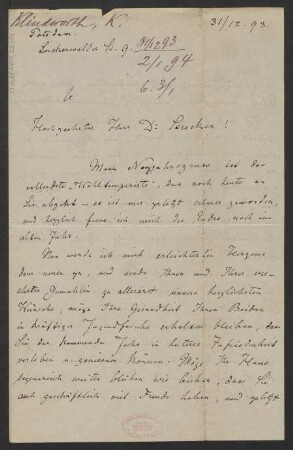 Klindworth, K.
31/12.93.
Potsdam.
Luckenwalder St. 9. 31/12 93
2/1 94
6. 3/1
Hochgeehrter Herr Dr Strecker!
Mein Neujahrsgruss ist das
vollendete "Wohltemperirte", das noch heute an
Sie abgeht – es ist mir zuletzt schwer geworden,
und herzlich freue ich mich des Endes noch im
alten Jahr.
Nun wende ich mich erleichterten Herzens
dem neuen zu, und sende Ihnen und Ihrer ver-
ehrten Gemahlin zu allererst unsere herzlichsten
Wünsche, möge Ihre Gesundheit Ihnen Beiden
in kräftiger Jugendfrische erhalten bleiben, dass
Sie das kommende Jahr in heiterer Zufriedenheit
verleben u. geniessen können. Möge Ihr Haus
segensreich weiter blühen wie bisher, dass Sie
auch geschäftlich viel Freude haben, und zuletzt